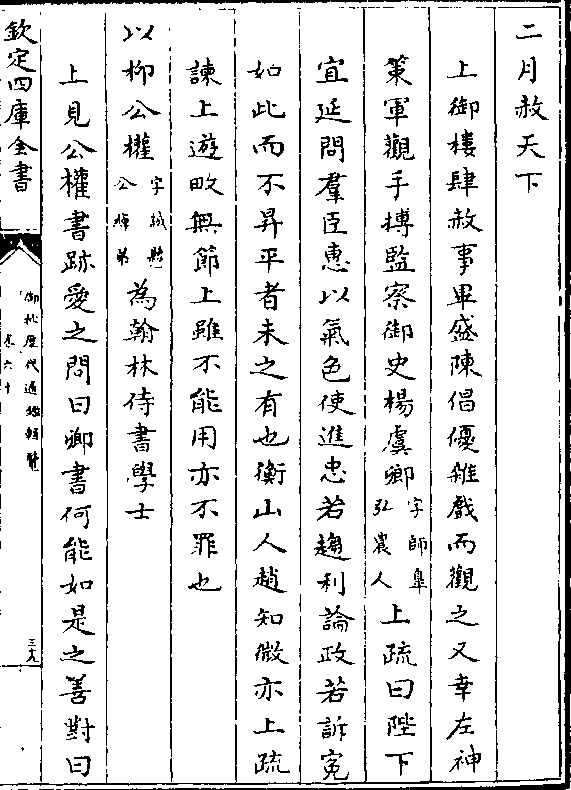 二月赦天下
上御樓肆赦事畢盛陳倡優雜戲而觀之又幸左神
策軍觀手搏監察御史楊虞卿字師臯弘農人上疏曰陛下
宜延問羣臣惠以氣色使進忠若趨利論政若訴寃
如此而不昇平者未之有也衡山人趙知微亦上疏
諫上遊畋無節上雖不能用亦不罪也
以柳公權字誠懸公綽弟為翰林侍書學士
上見公權書跡愛之問曰卿書何能如是之善對曰
欽定四庫全書
御批歷代通鑑輯覽
卷六十
三十九